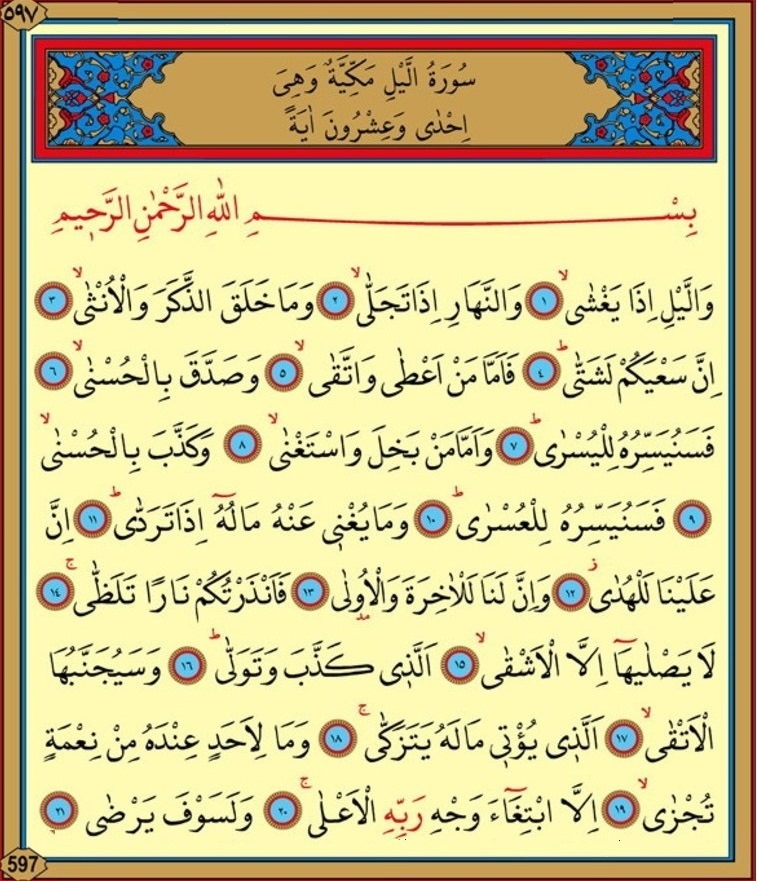 ٥٩٧
سُورَةُ الَّيْلِ مَكِّيَّةٌ وَهِىَ
اِحْدٰى وَعِشْرُونَ اٰيَةً
بِسْمِ اللّٰهِ الرَّحْمٰنِ الرَّح۪يمِ
وَالَّيْلِ اِذَا يَغْشٰىۙ ﴿١﴾ وَالنَّهَارِ اِذَا تَجَلّٰىۙ ﴿٢﴾ وَمَا خَلَقَ الذَّكَرَ وَالْاُنْثٰىۙ ﴿٣﴾
اِنَّ سَعْيَكُمْ لَشَتّٰىۜ ﴿٤﴾ فَاَمَّا مَنْ اَعْطٰى وَاتَّقٰىۙ ﴿٥﴾ وَصَدَّقَ بِالْحُسْنٰىۙ ﴿٦﴾
فَسَنُيَسِّرُهُ لِلْيُسْرٰىۜ ﴿٧﴾ وَاَمَّا مَنْ بَخِلَ وَاسْتَغْنٰىۙ ﴿٨﴾ وَكَذَّبَ بِالْحُسْنٰىۙ
﴿٩﴾ فَسَنُيَسِّرُهُ لِلْعُسْرٰىۜ ﴿١٠﴾ وَمَا يُغْن۪ي عَنْهُ مَالُهُٓ اِذَا تَرَدّٰىۜ ﴿١١﴾ اِنَّ
عَلَيْنَا لَلْهُدٰىۘ ﴿١٢﴾ وَاِنَّ لَنَا لَلْاٰخِرَةَ وَالْاُو۫لٰى ﴿١٣﴾ فَاَنْذَرْتُكُمْ نَارًا تَلَظّٰىۚ ﴿١٤﴾
لَا يَصْلٰيهَٓا اِلَّا الْاَشْقٰىۙ ﴿١٥﴾ اَلَّذ۪ي كَذَّبَ وَتَوَلّٰىۜ ﴿١٦﴾ وَسَيُجَنَّبُهَا
الْاَتْقٰىۙ ﴿١٧﴾ اَلَّذ۪ي يُؤْت۪ي مَالَهُ يَتَزَكّٰىۚ ﴿١٨﴾ وَمَا لِاَحَدٍ عِنْدَهُ مِنْ نِعْمَةٍ
تُجْزٰىۙ ﴿١٩﴾ اِلَّا ابْتِغَٓاءَ وَجْهِ رَبِّهِ الْاَعْلٰىۚ ﴿٢٠﴾ وَلَسَوْفَ يَرْضٰى ﴿٢١﴾
597